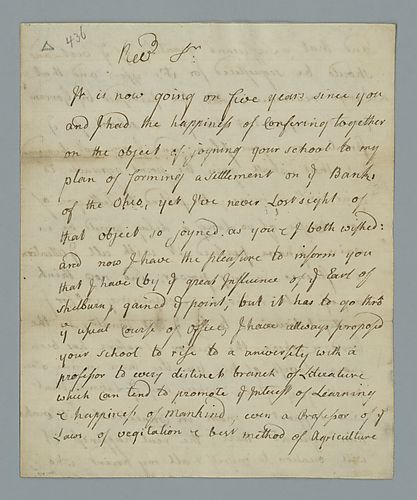 436
Revd. Sr.
It is now going on five years since you
and I had the happiness of Confering together
on the object of joyning your school to my
plan of forming a settlement on ye Banks
of the Ohio, yet I've never Lost sight of
that object so joyned as you & I both wished:
and now I have the pleasure to inform you
that I have (by ye great Influence of ye Earl of
Shelburn) gained ye point, but it has to go thro
ye usual Course of office, I have allways propos'd
your school to rise to a university with a
professor to every distinct branch of Literature
which Can tend to promote ye Interest of Learning
& happiness of Mankind, even a Professor of ye
Laws of vegitation & best method of Agriculture